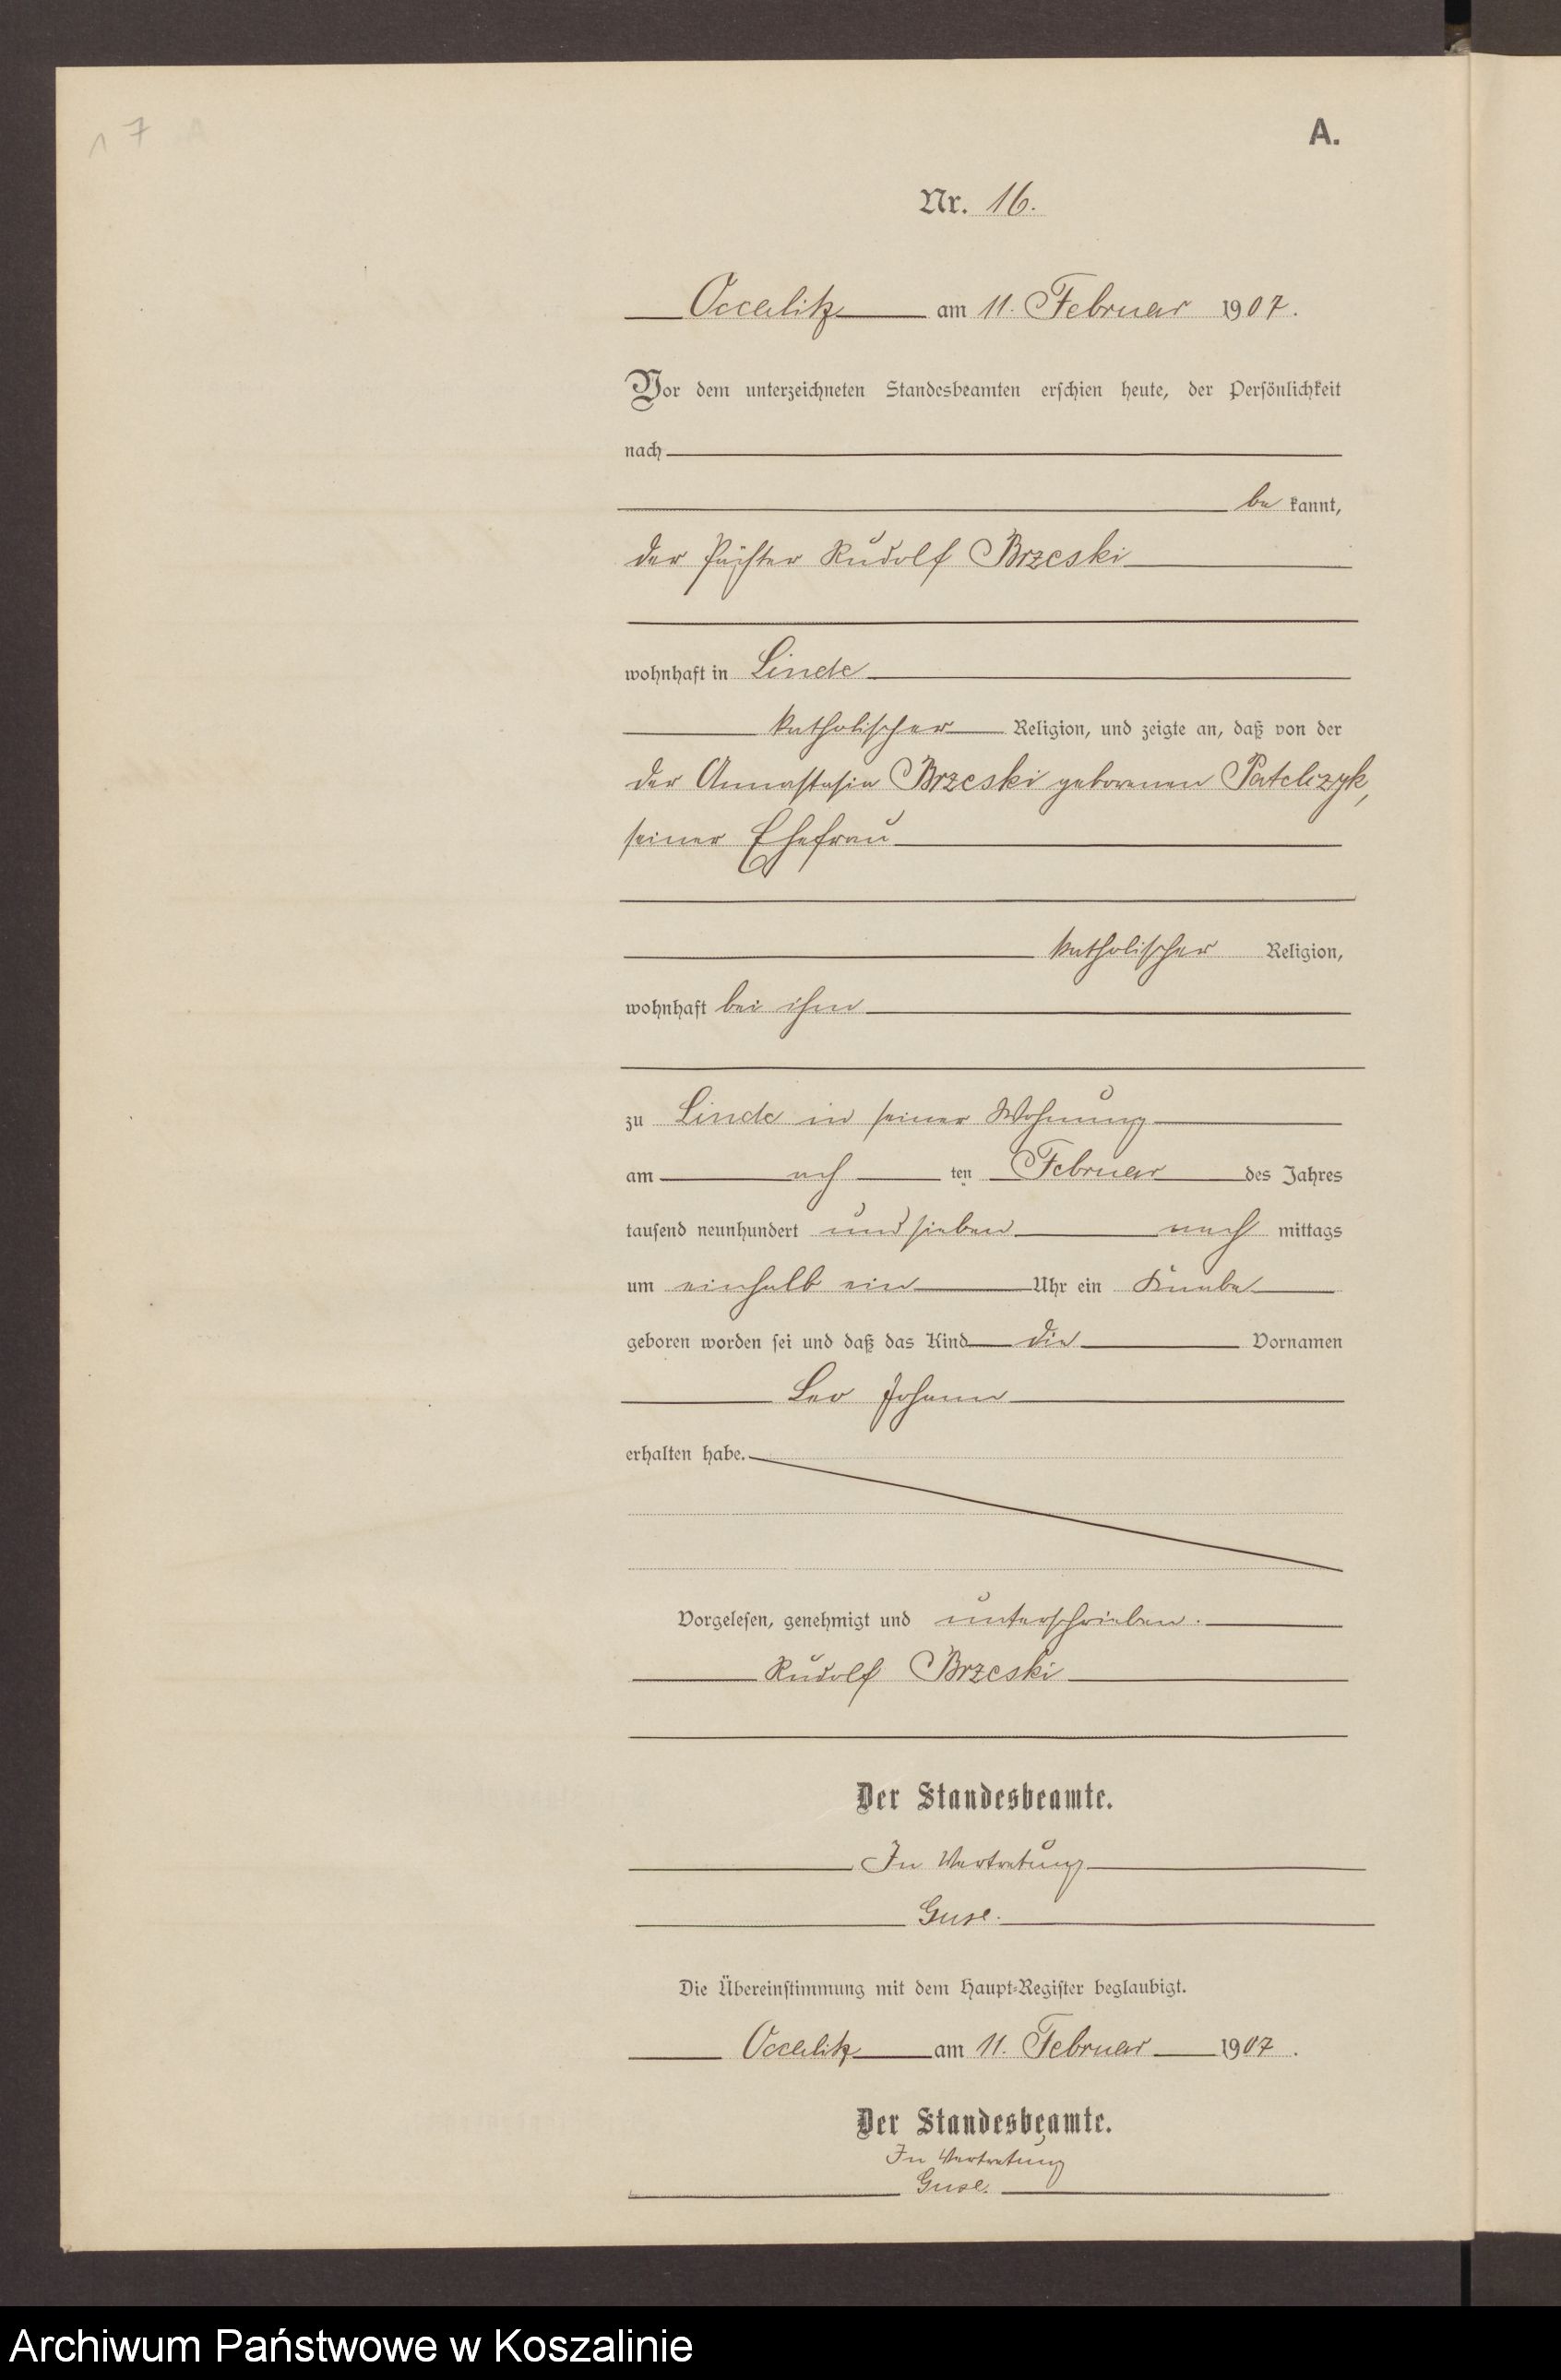 17
A.
Nr. 16.
Occalitz am 11. Februar 1907.
Vor dem unterzeichneten Standesbeamten erschien heute, der Persönlichkeit
nach
be kannt,
der Pächter Rudolf Brzeski
wohnhaft in Linde
katholischer Religion, und zeigte an, daß von der
der Annastasia Brzeski geborenen Patelczyk,
seiner Ehefrau
katholischer Religion,
wohnhaft bei ihm
zu Linde in seiner Wohnung
am ach ten Februar des Jahres
tausend neunhundert und sieben nach mittags
um einhalb ein Uhr ein Knabe
geboren worden sei und daß das Kind die Vornamen
Leo Johann
erhalten habe.
Vorgelesen, genehmigt und unterschrieben.
Rudolf Brzeski
Der Standesbeamte.
In Vertretung
Guse.
Die Übereinstimmung mit dem Haupt-Register beglaubigt.
Occalitz am 11. Februar 1907.
Der Standesbeamte.
In Vertretung
Guse.
Archiwum Państwowe w Koszalinie